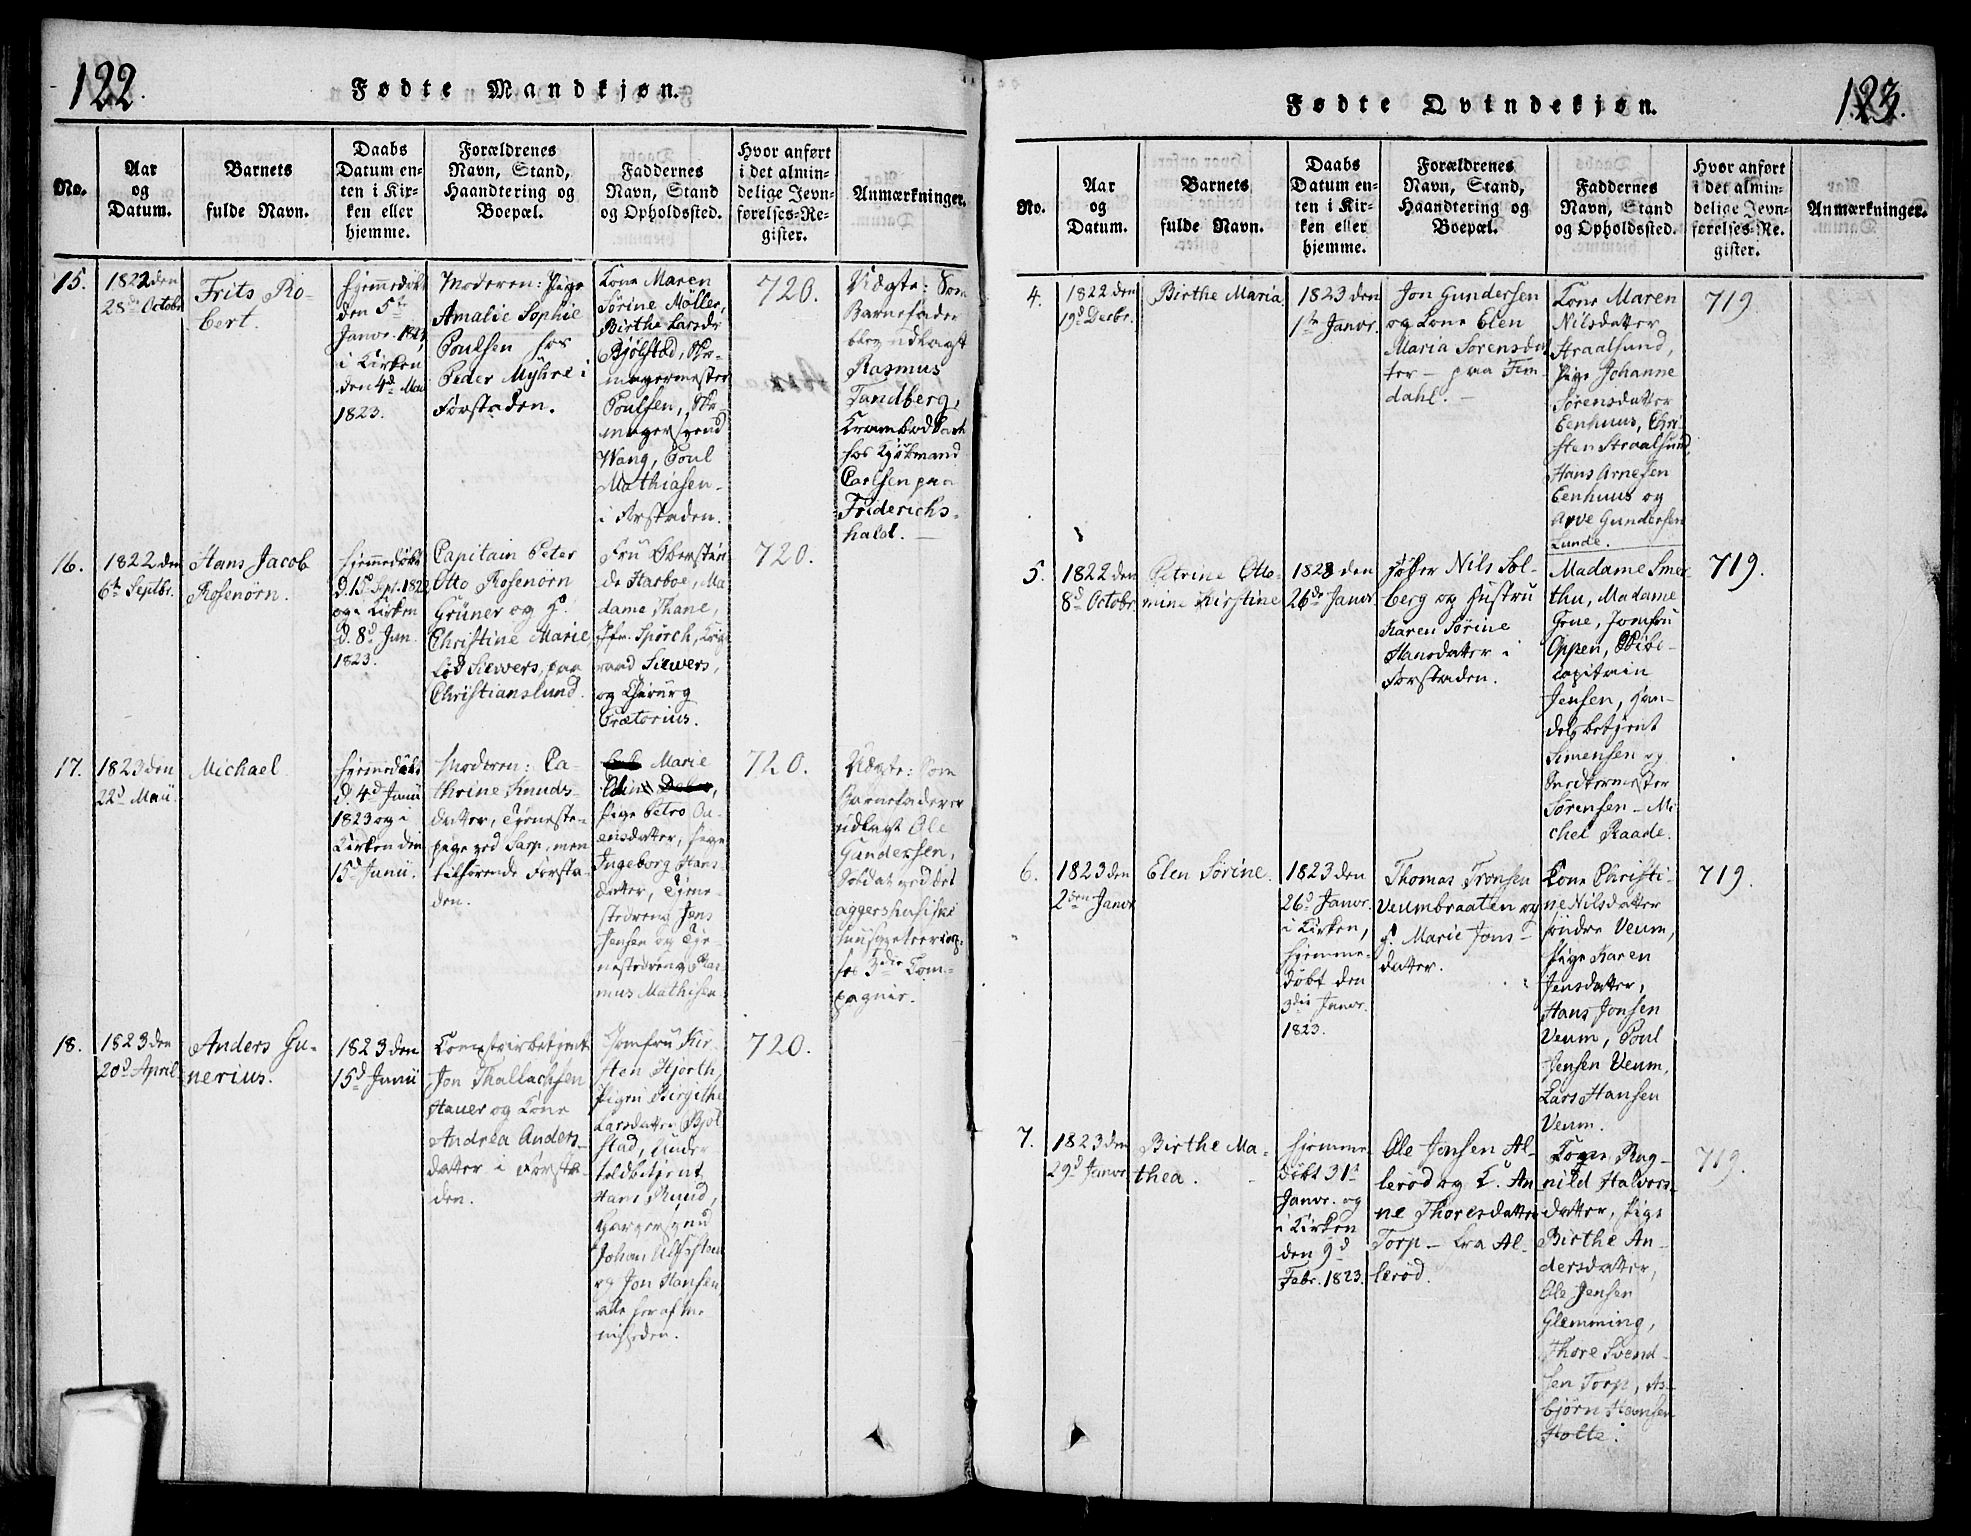 122.
Fødte Mandkjøn.
No.
Aar
og
Datum.
Barnets
fulde Navn.
Daabs
Datum en-
ten i Kir-
ken eller
hjemme.
Forældrenes
Navn, Stand,
Haandtering og
Boepæl.
Faddernes
Navn, Stand
og Opholdssted.
Hvor anført
i det almin-
delige Jevn-
førelses-Re-
gister.
Anmærkninger.
15.
1822 den
28de Octobr
Frits Ro-
bert.
Hjemmedøbt
den 5te
Janvr. 1823,
i Kirken
den 4d Mai
1823.
Moderen: Pige
Amalie Sophie
Poulsen hos
Peder Myhre i
Forstaden.
Kone Maren
Sørine Møller,
Birthe Larsdr
Bjølstad, Sko-
magermester
Poulsen, Sko-
magersvend
Wang, Poul
Mathiasen
i Forstaden.
720.
Uægte: Som
Barnefader
blev udlagt
Rasmus
Tandberg,
Krambod
hos Kjøbmand
Carlsen paa
Friderichs-
hald.
16.
1822 den
6te Septbr.
Hans Jacob
Rosenørn.
Hjemmedøbt
d. 15d Sept. 1822
og i Kirken
d. 8d Jan.
1823.
Capitain Peter
Otto Rosenørn
Grüner og H.
Christine Marie,
fød Siewers, paa
Christianslund.
Fru Oberstin-
de Harboe, Ma-
dame Thane,
Jfr. Spørck, Krigs-
raad Siewers,
og Chirurg
Prætorius.
720.
17.
1823 den
22d Maii
Michael
Hjemmedøbt
d. 4d Junii
1823 og i
Kirken den
15d Junii.
Moderen: Ca-
thrine Knuds-
datter, Tjeneste-
pige ved Sarp, men
tilhørende Forsta-
den.
Marie
Pige Petro
ensdatter, Pige
Ingeborg Hans
datter, Tjene-
stedreng Jens
Jensen og Tje-
nestedreng Ras-
mus Mathisen
720.
Uægte: Som
Barnefader er
udlagt Ole
Gundersen,
Soldat ved det
aggershusiske
3die Com-
pagnie.
18.
1823 den
20d April
Anders Gu-
nerius.
1823 den
15d Junii
Jon Thallachsen
Hauer og Kone
Andrea Anders-
datter i Forsta-
den.
Jomfru Kir-
sten Hjorth,
Pigen Birgithe
Larsdatter Bjøl-
stad, Under-
toldbetjent
Hans Ruud,
Garversvend
Johan
og Jon Hansen
alle her af Me-
nigheden.
720.
123.
Fødte Qvindekjøn.
No.
Aar
og
Datum.
Barnets
fulde Navn.
Daabs
Datum en-
ten i Kir-
ken eller
hjemme.
Forældrenes
Navn, Stand,
Haandtering og
Boepæl.
Faddernes
Navn, Stand
og Opholdssted.
Hvor anført
i det almin-
delige Jevn-
førelses-Re-
gister.
Anmærkninger.
4.
1822 den
19d Decbr.
Birthe Maria
1823 den
1ste Janvr.
Jon Gundersen
og Kone Elen
Maria Sørensdat-
ter — paa Fem-
dahl.
Kone Maren
Nilsdatter
Straalsund,
Pige Johanne
Sørensdatter
Eenhuus, Chri-
sten Straalsund,
Hans Arnesen
Eenhuus og
Arve Gundersen
Lunde.
719.
5.
1822 den
8d Octobr
Petrine Otto-
mine Kirstine
1823 den
26de Janvr
Nils Sol-
berg og Hustru
Karen Sørine
Hansdatter i
Forstaden.
Madame Smer-
thu, Madame
Grue, Jomfru
Oppen, Skibs-
capitain
Jensen, Han-
delsbetjent
Simensen og
Snedkermester
Sørensen — Mi-
chel Raade.
719.
6.
1823 den
2den Janvr
Elen Sørine.
1823 den
26d Janvr.
i Kirken,
hjemme-
døbt den
3die Janvr.
1823.
Thomas Tronsen
Veumbraaten og
H. Marie Jons-
datter.
Kone Christi-
ne Nilsdatter
søndre Veum,
Pige Karen
Jensdatter,
Hans Jonsen
Veum, Poul
Jensen Veum,
Lars Hansen
Veum.
719.
7.
1823 den
29d Janvr
Birthe Ma-
thea.
Hjemme-
døbt 31te
Janvr. og
i Kirken
den 9d
Febr. 1823.
Ole Jensen Al-
lerød og K. An-
ne Thoresdatter
Torp — fra Al-
lerød.
Kone Rag-
nild Halvors-
datter, Pige
Birthe An-
dersdatter,
Ole Jensen
Glemming,
Thore Svend-
sen Torp, As-
bjørn Hansen
Holte.
719.